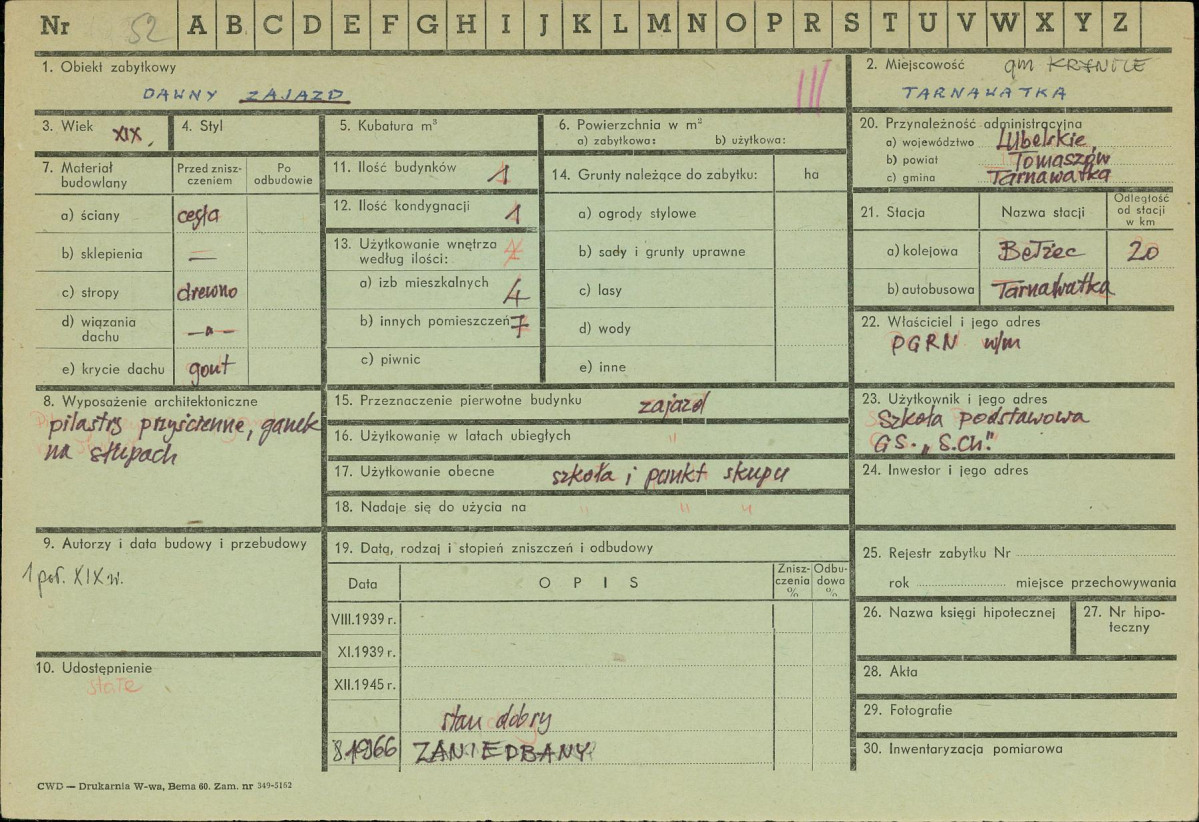 Nr 52 A B C D E F G H I J K L M N O P R S T U V W X Y Z
1. Obiekt zabytkowy
DAWNY ZAJAZD
III
2. Miejscowość gm
TARNAWATKA
3. Wiek XIX.
4. Styl
5. Kubatura m³
6. Powierzchnia w m²
a) zabytkowa: b) użytkowa:
20. Przynależność administracyjna
a) województwo Lubelskie
b) powiat Tomaszów
c) gmina Tarnawatka
7. Materiał budowlany
Przed znisz-
czeniem
Po
odbudowie
a) ściany cegła
b) sklepienia —
c) stropy drewno
d) wiązania
dachu —"—
e) krycie dachu gont
11. Ilość budynków 1
12. Ilość kondygnacji 1
13. Użytkowanie wnętrza
według ilości:
a) izb mieszkalnych 4
b) innych pomieszczeń 7
c) piwnic
14. Grunty należące do zabytku: ha
a) ogrody stylowe
b) sady i grunty uprawne
c) lasy
d) wody
e) inne
21. Stacja Nazwa stacji
Odległość
od stacji
w km
a) kolejowa Bełżec 20
b) autobusowa Tarnawatka
22. Właściciel i jego adres
PGRN w/m
8. Wyposażenie architektoniczne
pilastry przyścienne, ganek
na słupach
15. Przeznaczenie pierwotne budynku zajazd
16. Użytkowanie w latach ubiegłych "
17. Użytkowanie obecne szkoła i punkt skupu
18. Nadaje się do użycia na " " "
23. Użytkownik i jego adres
Szkoła podstawowa
GS. „S.Ch."
24. Inwestor i jego adres
9. Autorzy i data budowy i przebudowy
1 poł. XIX w.
10. Udostępnienie
stałe
19. Data, rodzaj i stopień zniszczeń i odbudowy
Data OPIS
Znisz-
czenia
%
Odbu-
dowa
%
VIII.1939 r.
XI.1939 r.
XII.1945 r.
stan dobry
1966 ZANIEDBANY
25. Rejestr zabytku Nr
rok miejsce przechowywania
26. Nazwa księgi hipotecznej
27. Nr hipo-
teczny
28. Akta
29. Fotografie
30. Inwentaryzacja pomiarowa
CWD — Drukarnia W-wa, Bema 60. Zam. nr 349-5162